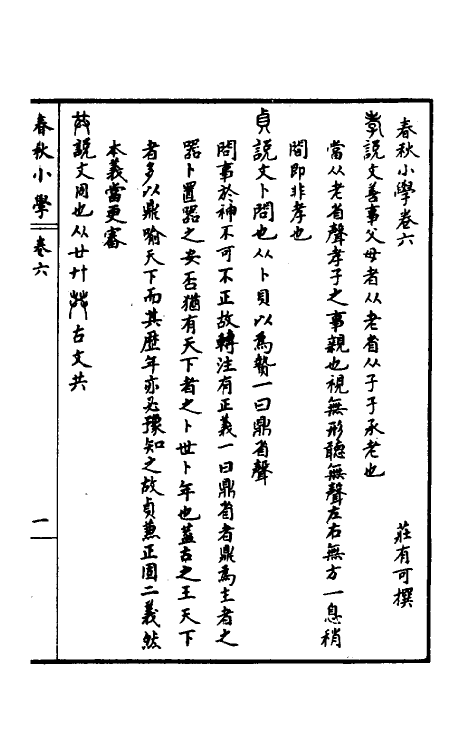 春秋小學卷六
莊有可撰
孝說文善事父母者从老省从子子承老也
當从老省聲孝子之事親也視無形聽無聲左右無方一息稍
間即非孝也
貞說文卜問也从卜貝以為贄一曰鼎省聲
問事於神不可不正故轉注有正義一曰鼎省者鼎為主者之
器卜置器之安否猶有天下者之卜世卜年也蓋古之王天下
者多以鼎喻天下而其歷年亦必豫知之故貞蒹正固二義然
本義當更審
共說文同也从廿廾古文共
春秋小學
卷六
一